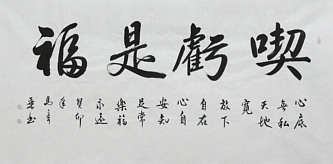 喫虧是福
心底
無私
天地
寬
放下
自在
心自
安知
足常
樂福
永遠
癸卯
年